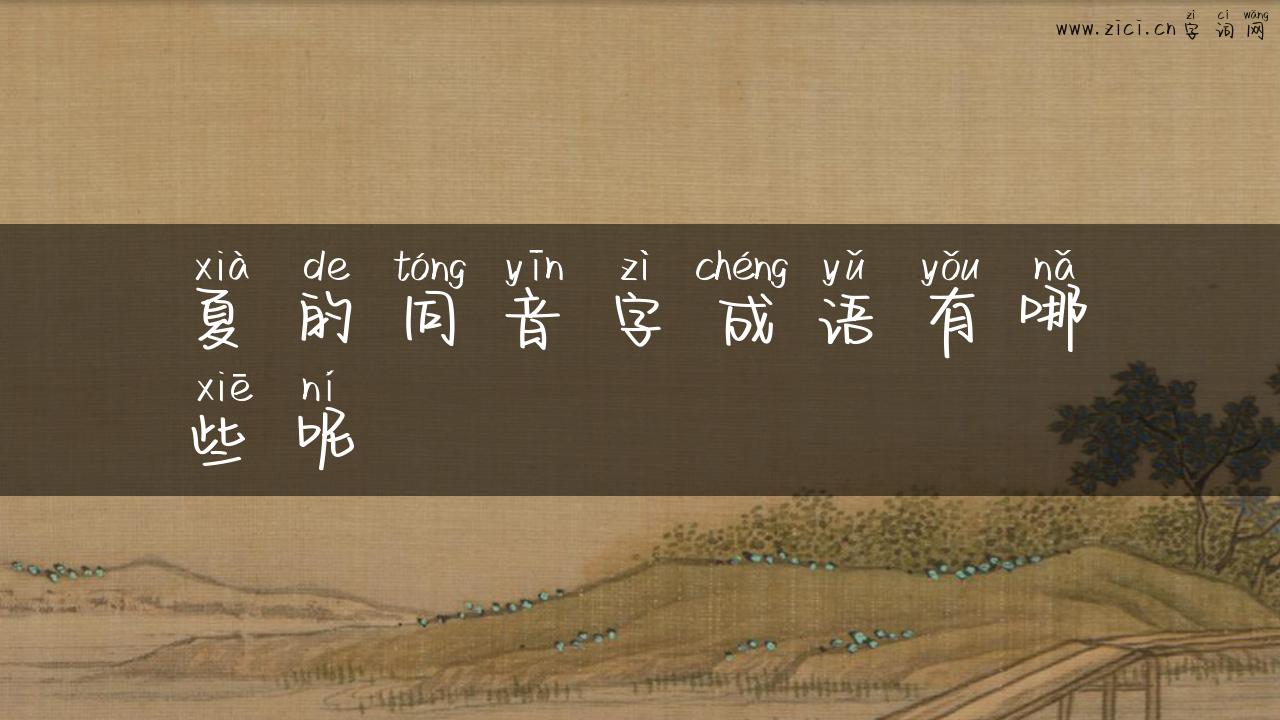 zì cí wǎng
www.zici.cn 字词网
xià de tóng yīn zì chéng yǔ yǒu nǎ
夏的同音字成语有哪
xiē ní
些呢